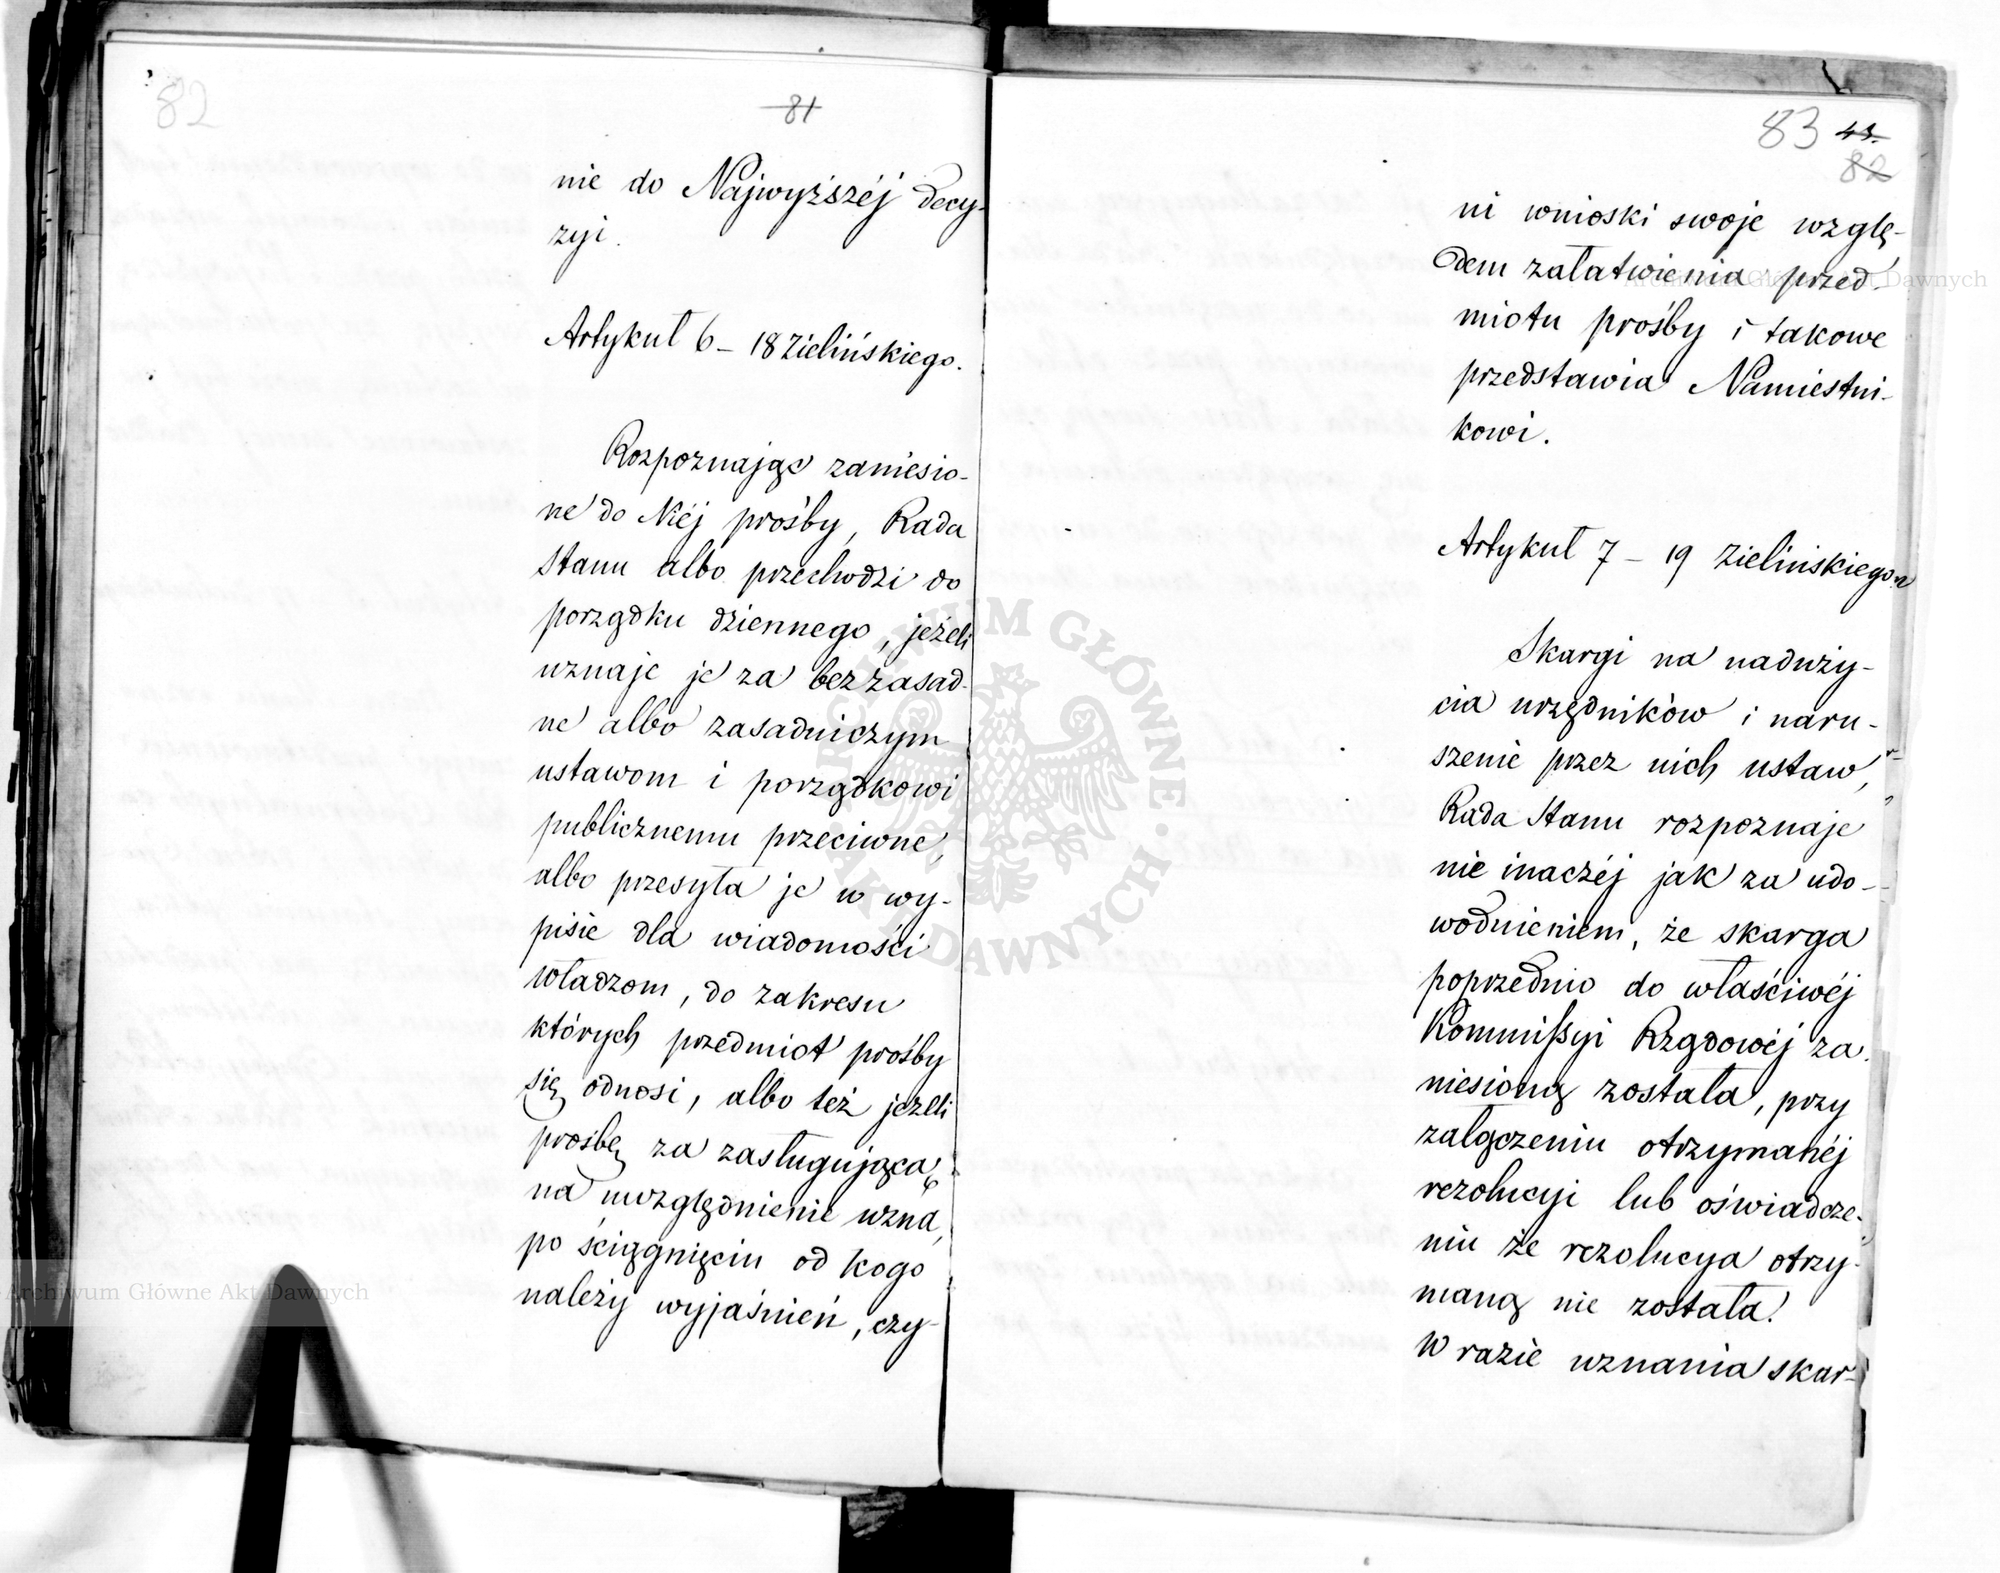 82
81
nie do Najwyższéj decy-
zyi.
Artykuł 6 – 18 Zielińskiego.
Rozpoznając zaniesio-
ne do Niéj prośby, Rada
Stanu albo przechodzi do
porządku dziennego, jeżeli
uznaje je za bezzasad-
ne albo zasadniczym
ustawom i porządkowi
publicznemu przeciwne,
albo przesyła je w wy-
pisie dla wiadomości
władzom, do zakresu
których przedmiot prośby
się odnosi, albo też jeżeli
prośbę za zasługującą
na uwzględnienie uzna,
po ściągnięciu od kogo
należy wyjaśnień, czy-
83 43.
82
ni wnioski swoje wzglę-
dem załatwienia przed-
miotu prośby i takowe
przedstawia Namiestni-
kowi.
Artykuł 7 – 19 Zielińskiego.
Skargi na naduży-
cia urzędników i naru-
szenie przez nich ustaw,
Rada Stanu rozpoznaje
nie inaczéj jak za udo-
wodnieniem, że skarga
poprzednio do właściwéj
Kommissyi Rządowéj za-
niesioną została, przy
załączeniu otrzymanéj
rezolucyi lub oświadcze-
niu że rezolucya otrzy-
maną nie została.
W razie uznania skar-
Archiwum Główne Akt Dawnych
Archiwum Główne Akt Dawnych
ARCHIWUM GŁÓWNE · AKT DAWNYCH ·